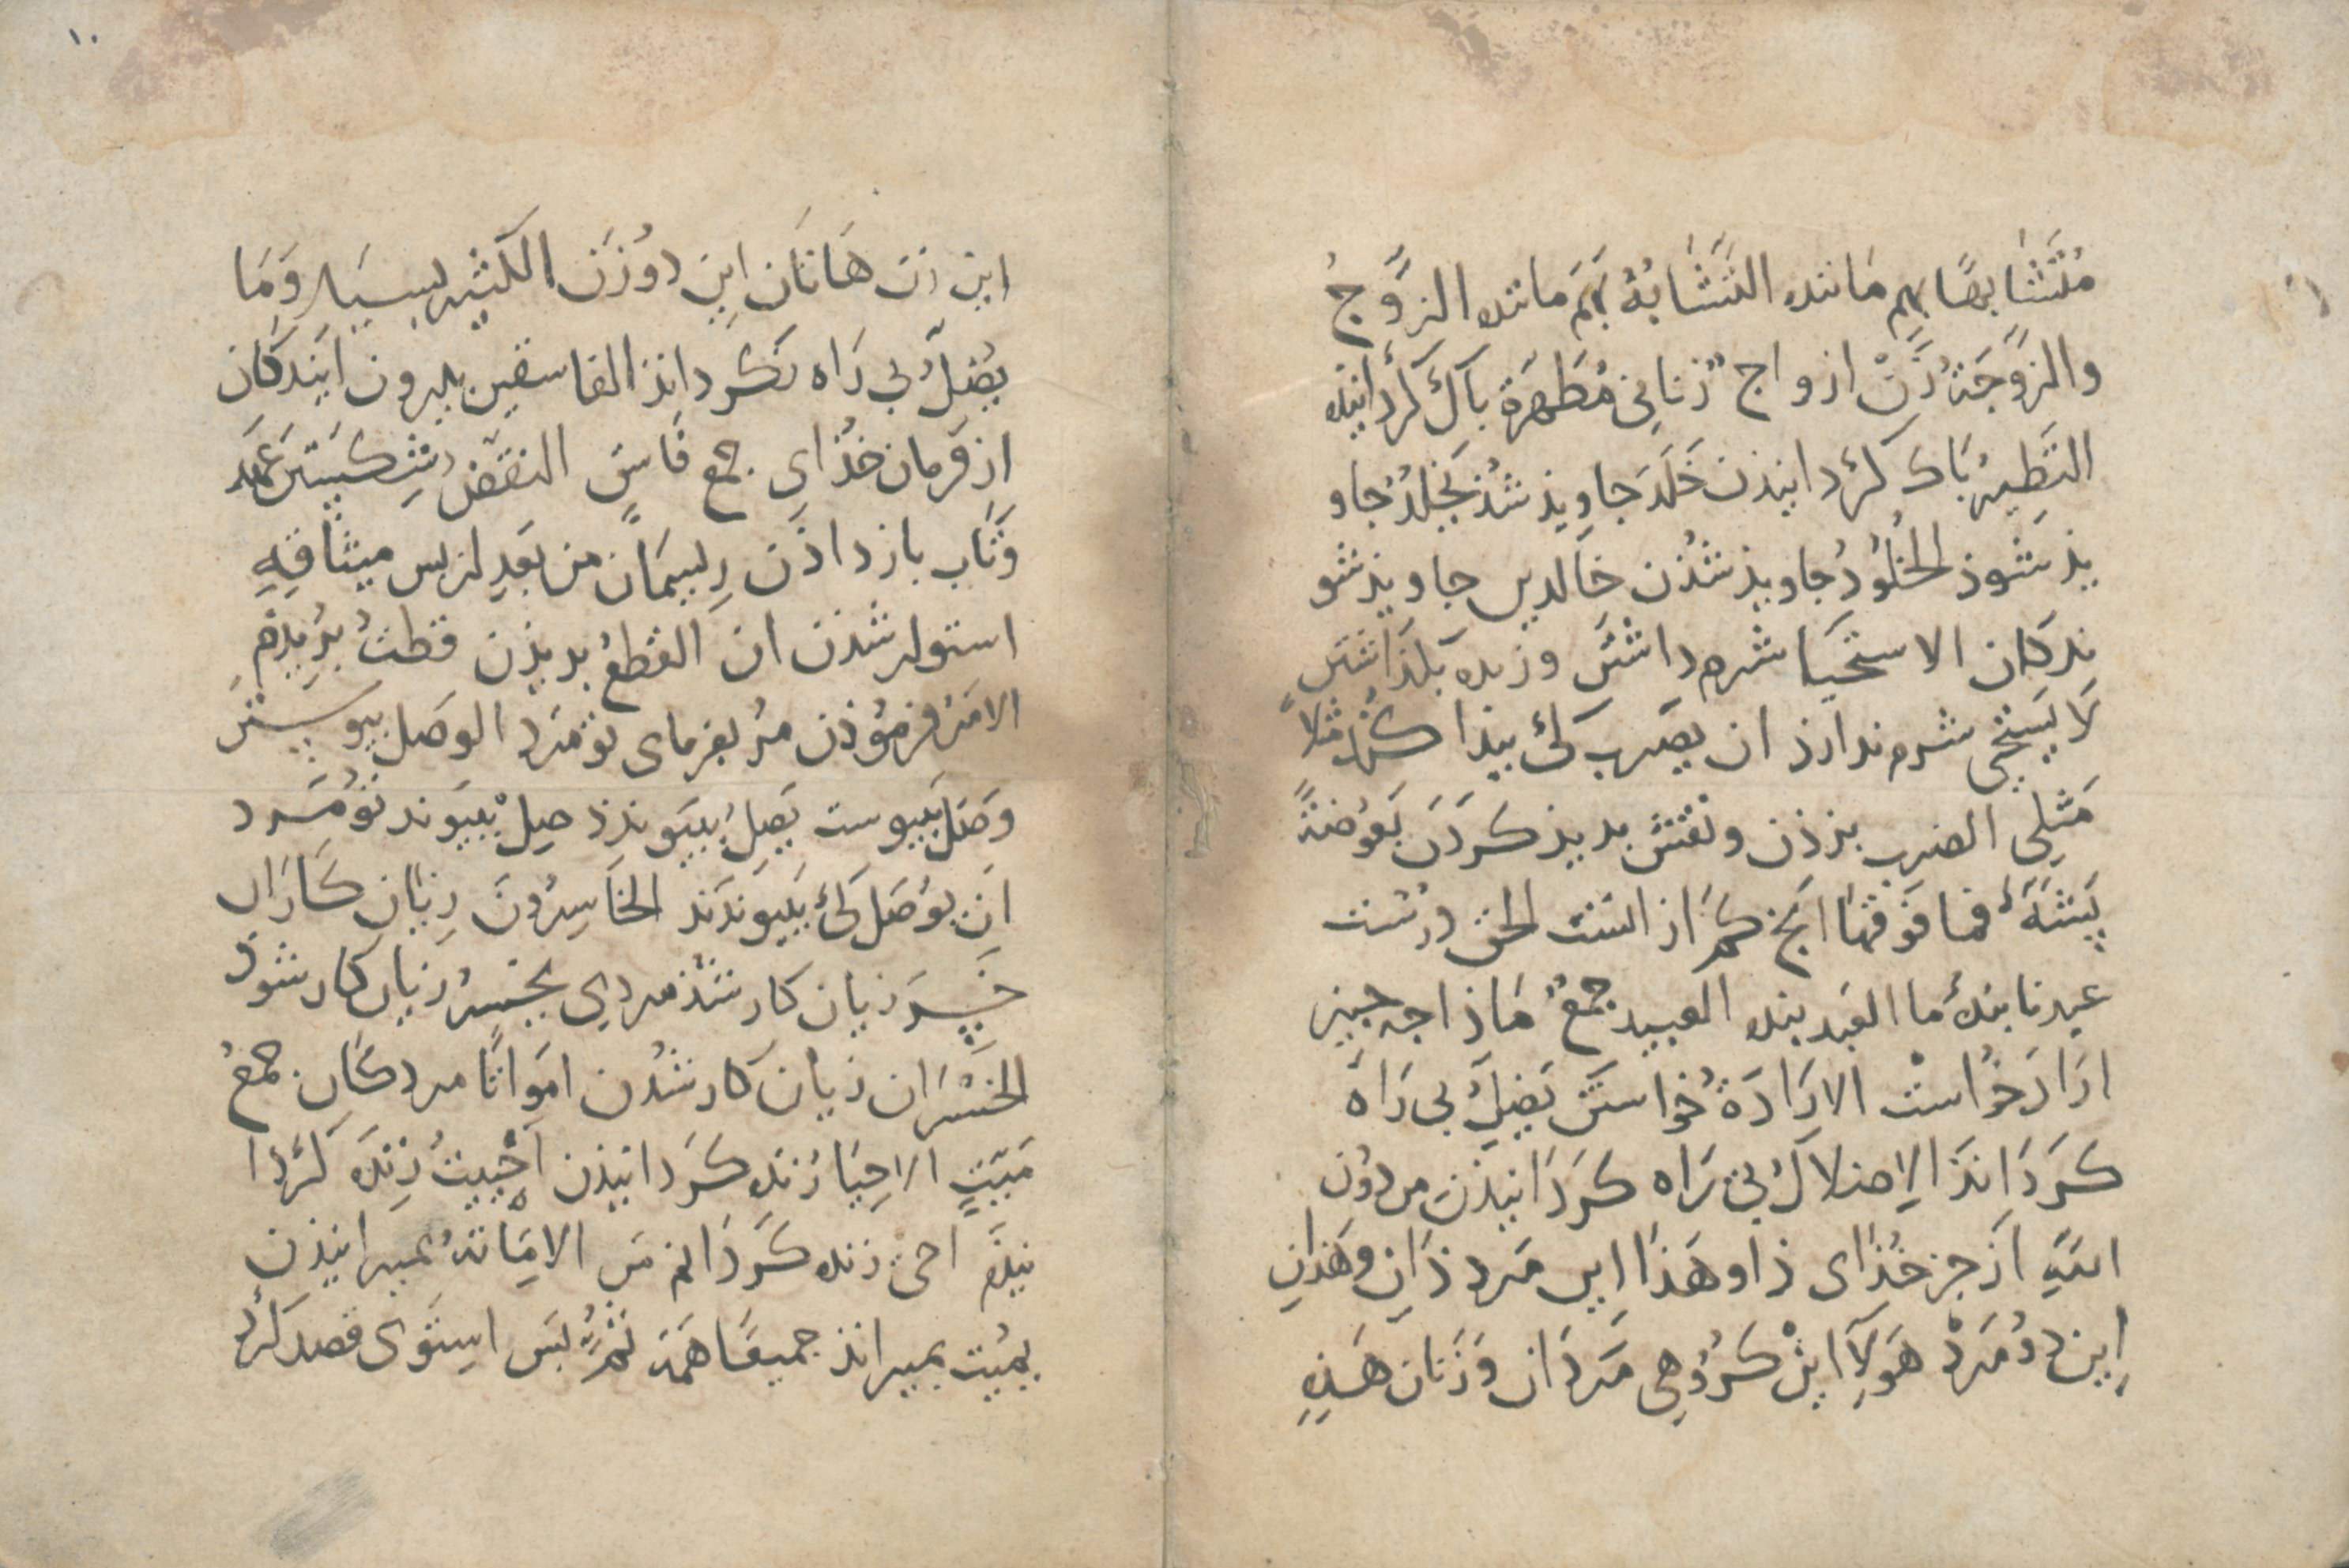 مُتَشَابِهًا بهم مَانند التَّشَابُهُ بَهَم مانند الزَّوجُ
والزَّوجَةُ زَنْ ازواجٌ زنانی مُطَهَّرَة باك کرد انیده
التَّطهیرُ بَاك کرد انیذن خَلَدَ جاویذ شُذ یَخلُدُ جاو
یذ شَوذ الخُلُودُ جاویذ شُذن خَالدین جاویذ شو
ندکان الاستحیا شرم داشتن وزنده بکذاشتن
لَا یَستحیی شرم ندارذ ان یضرب کی بیذا کند مثلاً
مَثَلِی الضرب بزذن ونقش بدیذ کردَن بَعُوضَةً
بَشَّهٔ فما فَوقَهَا انج کمَ از انست الحق درُست
عبدنا بندهٔ ما العَبد بنده العبید جمعٌ مَاذا جه جیز
ارَادَ خواستْ الارَادَةُ خواستَن یُضِلُّ بی رَاه
کرَدَانَذ الاِضلالُ بی رَاه کردَانیذن من دوُن
اللّهِ اَز جز خُذَای ذا وهَذَا این مَرد ذَانِ وهَذانِ
اِین دوُ مَرد هَولَآ این کرُوهِی مَردَان وَزَنان هَذِهِ
۱۰
این زن هَاتَان اِین دوُ زَن الکثیر بسیَار وَمَا
یُضِلُّ بی رَاه نکرد انَذ الفاسقین بیرون آیَندکَان
از فَرمان خُذَای جمع فَاسق النقضُ شِکَستن عَهد
وَتَاب باز داذَن رِیسمَان من بَعدِ از بس میثَاقِهِ
استوار شذن ان القطعُ بریذن قطعتُ بُریذَم
الامرُ فرمُوذن مُر بفرمای تو مَرد الوصَل بیوستن
وَصَلَ بیوست یَصِلُ بیوندذ صِلْ بیوند تو مَرد
اَن یُوصَل کی بیوندَند الخَاسِرُونَ زیان کَارَان
خَسِرَ زیان کار شُذ مردی یخسَرُ زیان کار شَوذ
الخُسْرَان زیان کار شُدن امَواتًا مردکَان جمعُ
مَیّتٍ الاحیَا زنده کردانیذن اَحْیَیتُ زنده کردا
نیذَم احی زنده کردَانم من الامِاتَةُ بمیرانیذن
یمیت بمیرانذ جمیعًا هَمَه ثُمَّ بَس استَوی قصد کرد